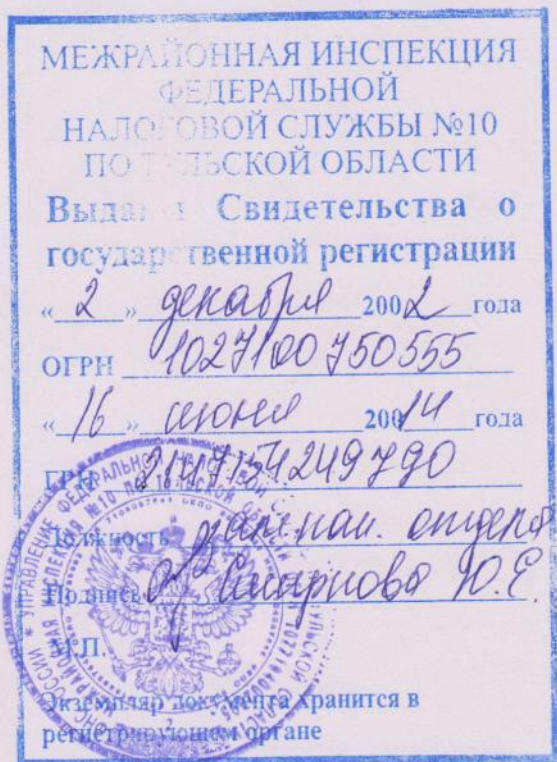 МЕЖРАЙОННАЯ ИНСПЕКЦИЯ
ФЕДЕРАЛЬНОЙ
НАЛОГОВОЙ СЛУЖБЫ №10
ПО ТУЛЬСКОЙ ОБЛАСТИ
Выданы Свидетельства о
государственной регистрации
« 2 » декабря 2002 года
ОГРН 1027100750555
« 16 » июня 200/14 года
ГРН 2147154249790
Должность зам. нач. отдела
Подпись Смирнова Ю.Е.
М.П.
Экземпляр документа хранится в
регистрирующем органе